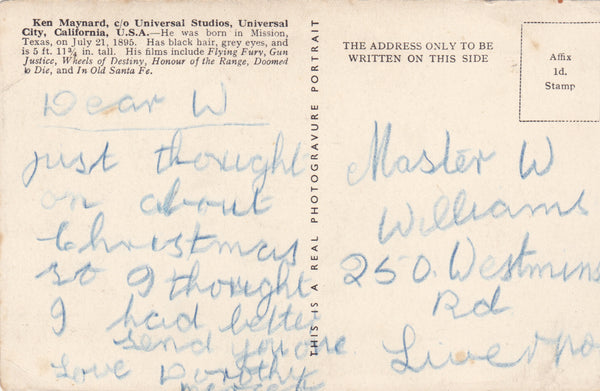 Ken Maynard, c/o Universal Studios, Universal
City, California, U.S.A.—He was born in Mission,
Texas, on July 21, 1895. Has black hair, grey eyes, and
is 5 ft. 11¾ in. tall. His films include Flying Fury, Gun
Justice, Wheels of Destiny, Honour of the Range, Doomed
to Die, and In Old Santa Fe.
Dear W
just thought
on about
Christmas
so I thought
I had better
send you one
love Dorothy
THIS IS A REAL PHOTOGRAVURE PORTRAIT
THE ADDRESS ONLY TO BE
WRITTEN ON THIS SIDE
Affix
1d.
Stamp
Master W
Williams
250. Westmins
Rd
Liverpo